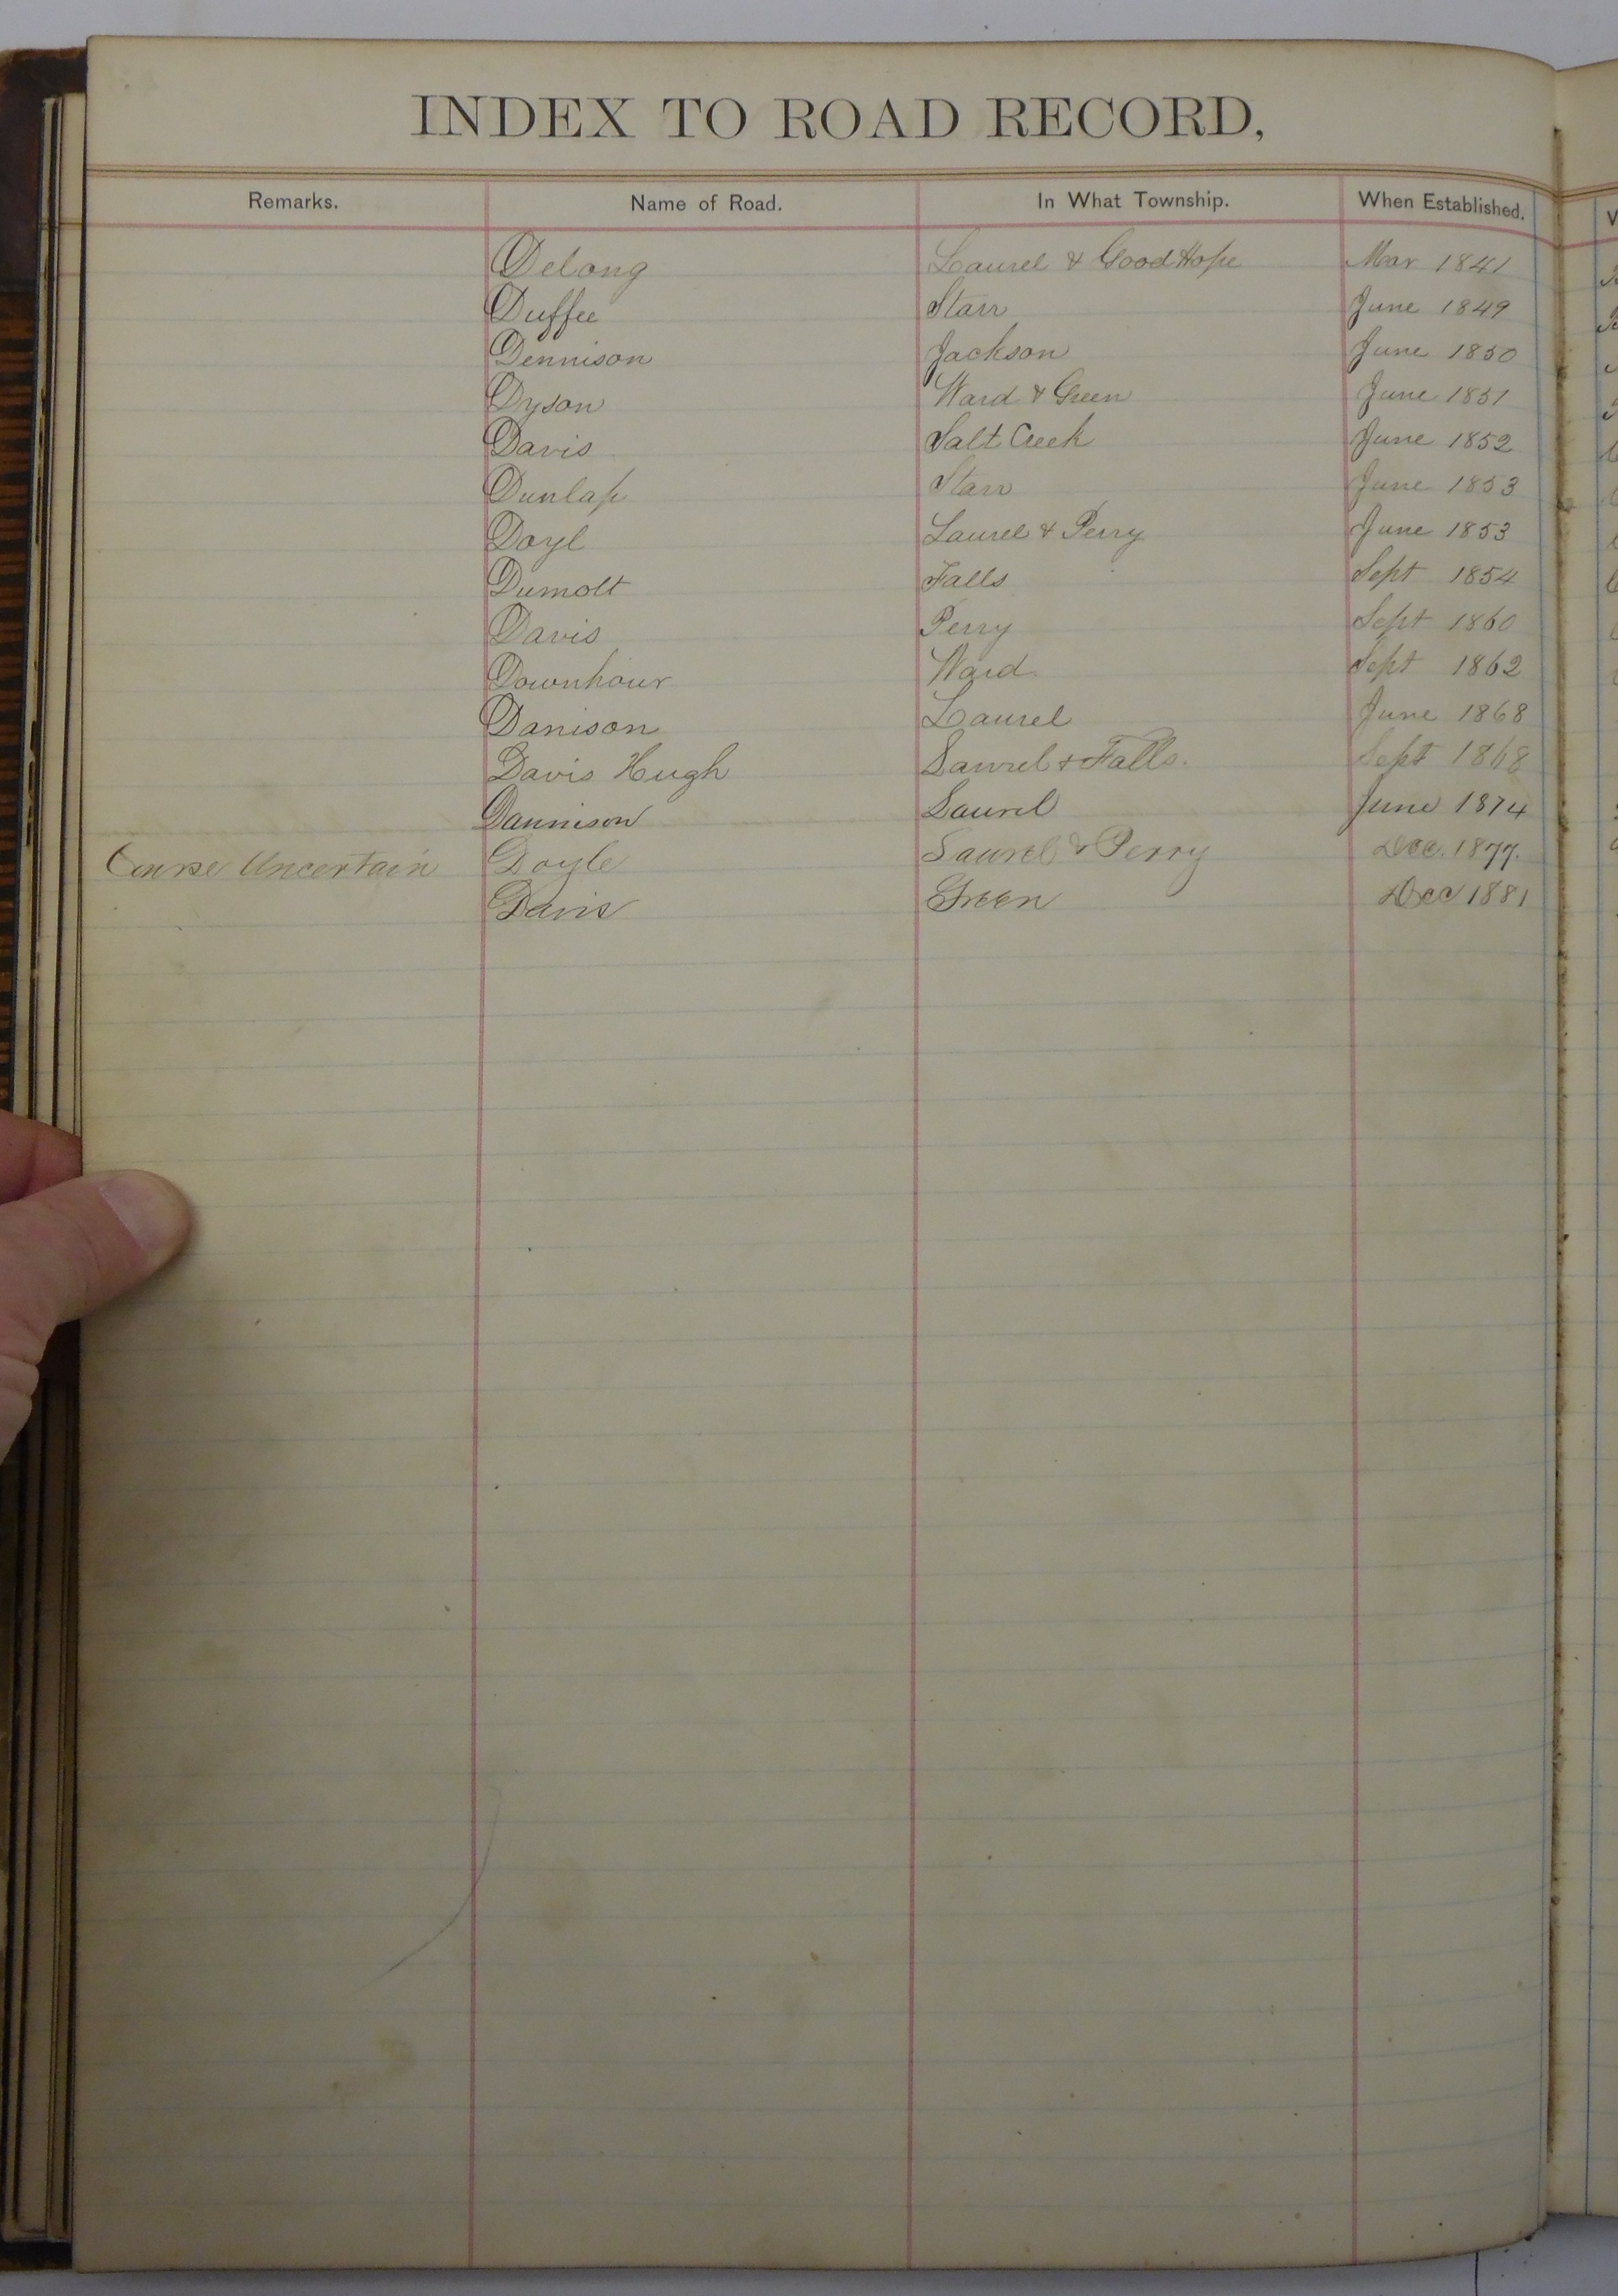 INDEX TO ROAD RECORD,
Remarks. Name of Road. In What Township. When Established.
Delong Laurel & Good Hope Mar 1841
Duffee Starr June 1849
Dennison Jackson June 1850
Dyson Ward & Green June 1851
Davis Salt Creek June 1852
Dunlap Starr June 1853
Doyl Laurel & Perry June 1853
Dumolt Falls Sept 1854
Davis Perry Sept 1860
Downhour Ward Sept 1862
Danison Laurel June 1868
Davis Hugh Laurel & Falls. Sept 1868
Dannison Laurel June 1874
Course Uncertain Doyle Laurel & Perry Dec. 1877.
Davis Green Dec 1881